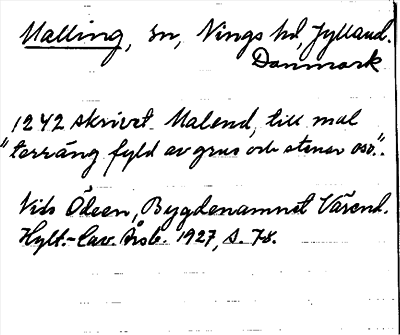 Malling, sn, Nings hd, Jylland.
Danmark
1242 skrivet Malend, till mal
"terräng fyld av grus och stenar oso".
Nils Ödeen, Bygdenamnet Värend.
Hylt.-Cav. Årsb. 1927, s. 78.